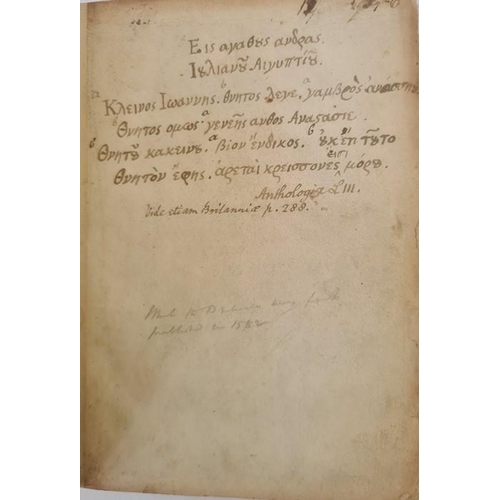 Εις αγαθους ανδρας.
Ιυλιανου Αιγυπτιου.
α Κλεινος Ιωαννης. β θνητος λεγε. α γαμβρὸς ἀνάσσης
β Θνητος ομως. α γενεῆς ανθος Αναςασιε.
β θνητου κακεινου. α βίον ἔνδικος. β ουκέτι τουτο
θνητὸν ἔφης. ἀρεταὶ κρεισσονές εισι μόρου.
Anthologia L III.
Vide etiam Britanniæ p. 288.
published in 1582